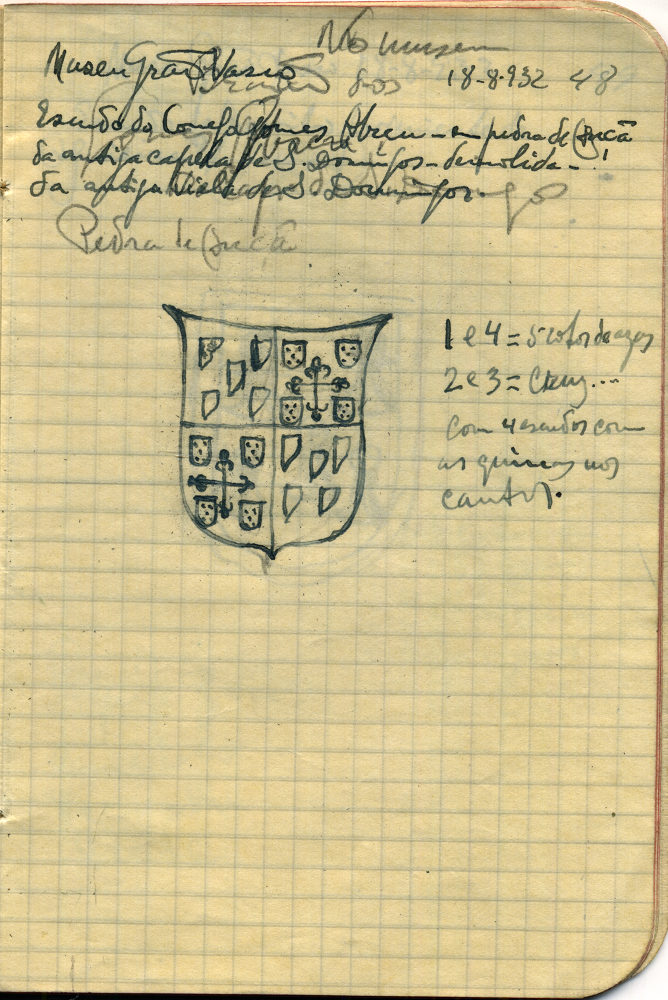 No museu
Museu Grão Vasco 18-8-932 48
Escudo do Conego Gomes Abreu - em pedra de Ançã
da antiga capela de S. Domingos - demolida - !
da antiga Viela de S. Domingos.
Pedra de Ançã
1 e 4 = 5 cotos de azas
2 e 3 = Cruz...
com 4 escudos com
as quinas nos
cantos.